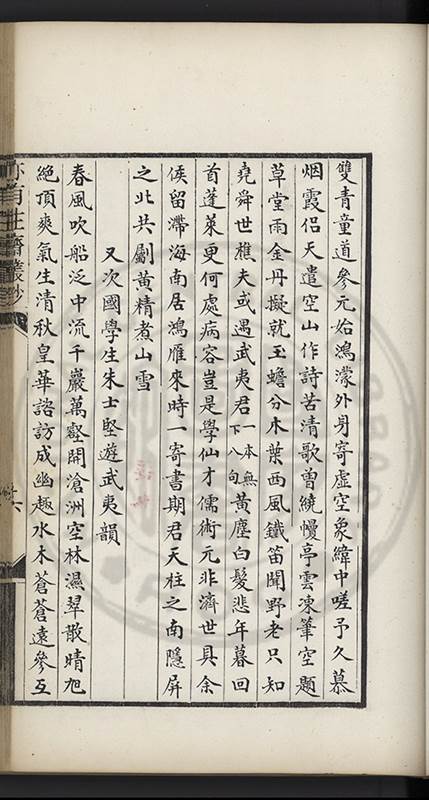 雙青童道參元始鴻濛外身寄虛空象緯中嗟予久慕
烟霞侶天遣空山作詩苦清歌曾繞幔亭雲凍筆空題
草堂雨金丹擬就玉蟾分木葉西風鐵笛聞野老只知
堯舜世樵夫或遇武夷君一本無下八句黃塵白髮悲年暮回
首蓬萊更何處病容豈是學仙才儒術元非濟世具余
侯留滯海南居鴻雁來時一寄書期君天柱之南隱屏
之北共劚黃精煮山雪
又次國學生朱士堅遊武夷韻
春風吹船泛中流千巖萬壑開滄洲空林濕翠散晴旭
絕頂爽氣生清秋皇華諮訪成幽趣水木蒼蒼遠參互
亦有生齋叢鈔